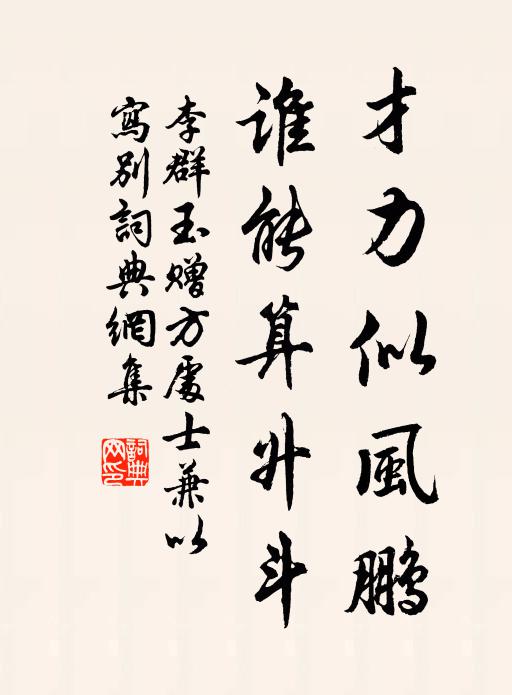 才力似風鵬
谁能算升斗
李群玉赠方處士兼以
寫別詞典網集
詞典網印